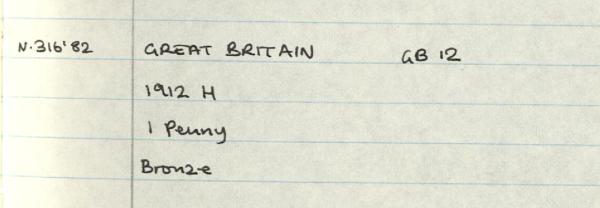 N.316'82 GREAT BRITAIN GB 12
1912 H
1 Penny
Bronze